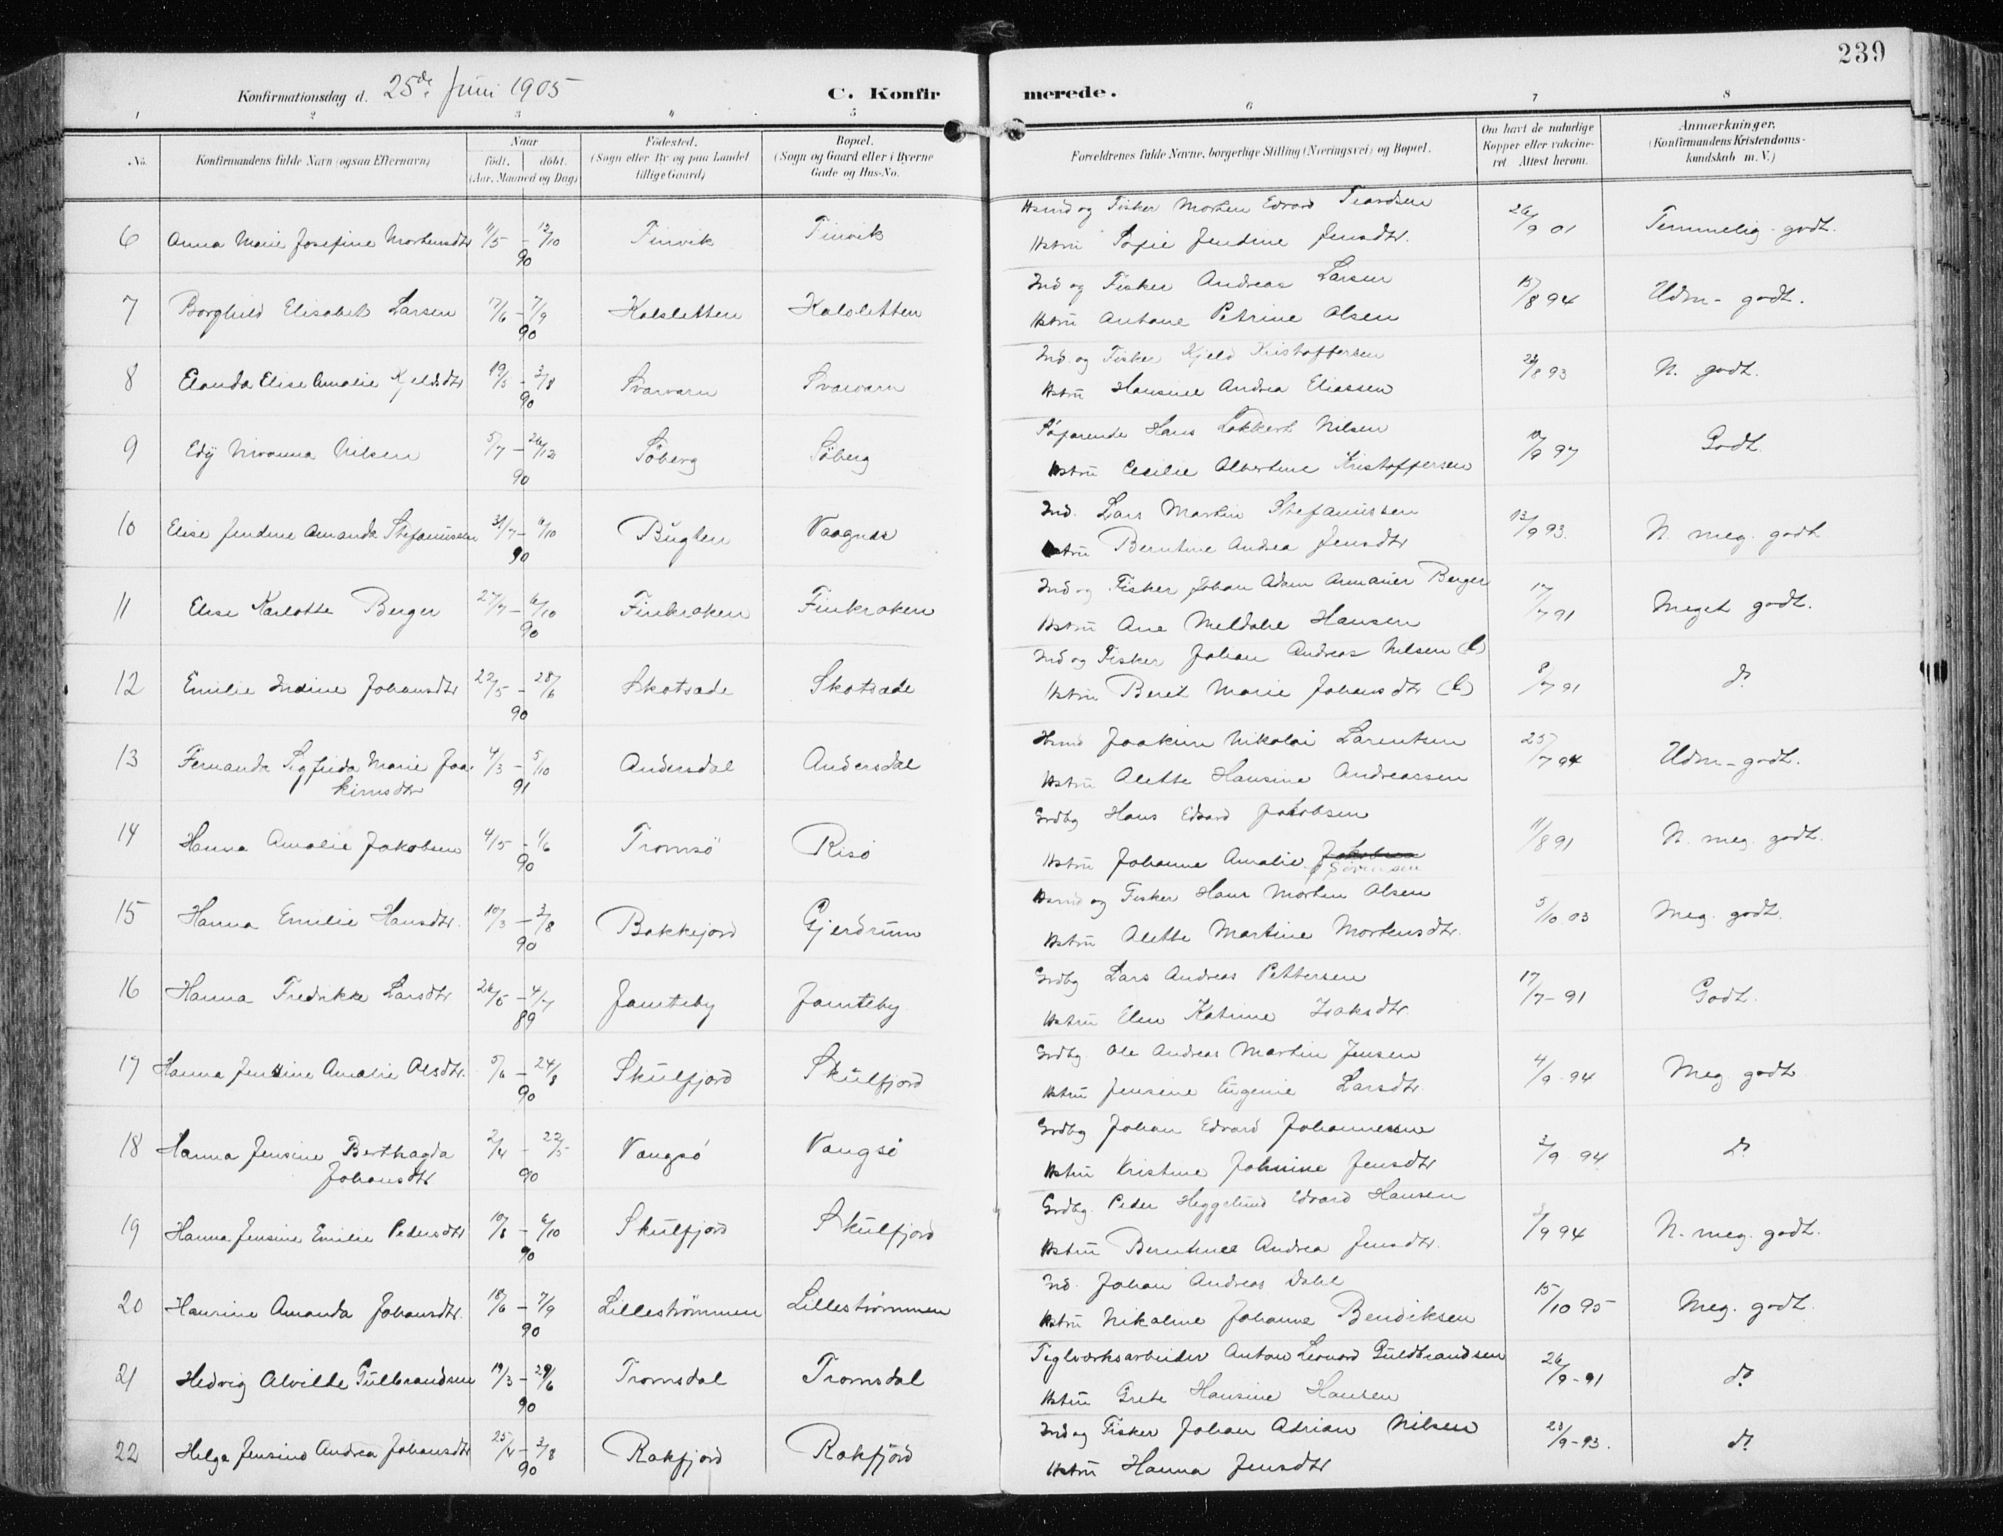 239
Konfirmationsdag d. 25de Juni 1905 C. Konfir merede.
1 2 3 4 5 6 7 8
No. Konfirmandens fulde Navn (ogsaa Efternavn)
Naar født. døbt. (Aar, Maaned og Dag)
Fødested. (Sogn eller By og paa Landet tillige Gaard)
Bopæl. (Sogn og Gaard eller i Byerne Gade og Hus-No.
Forældrenes fulde Navne, borgerlige Stilling (Næringsvei) og Bopæl.
Om havt de naturlige Kopper eller vakcineret Attest herom.
Anmærkninger. (Konfirmandens Kristendomskundskab m. V.)
6 Anna Marie Josefine Mortensdtr 11/5 - 12/10 90 Finvik Finvik
og Fisker Morten Edvard
Hstru Sofie Jendine Jensdtr. 26/9 01 Temmelig godt.
7 Borghild Elisabet Larsen 17/6 - 7/9 90 Kalsletten Kalsletten
Ind og Fisker Andreas Larsen
Hstru Antone Petrine Olsen 15/8 94 Udm- godt.
8 Elise Amalie Kjeldsdtr 19/5 - 3/8 90 Svarvarn Svarvarn
Ind. og Fisker Kjeld Kristoffersen
Hstru Hansine Andrea Eliassen /8 93 N. godt.
9 Nilsen 5/7 - 26/12 90 Søberg Søberg
Søfarende Hans Lokkert Nilsen
Hstru Cecilie Albertine Kristoffersen 10/9 97 Godt.
10 Elise Jendine Amanda Stefanussen 31/7 - 6/10 90 Buglen Vaagnæs
Ind. Lars Martin Stefanussen
Hstru Berntine Andrea Jensdtr 13/9 93. N. meg. godt
11 Elise Karlotte Berger 27/7 - 6/10 90 Finkroken Finkroken
Ind og Fisker Johan Adam Armauer Berger
Hstru Ane Meldale Hansen 17/7 91 Meget godt.
12 Emilie Indine Johansdtr 22/5 - 28/6 90 Skotsæde Skotsæde
Ind og Fisker Johan Andreas Nilsen (l)
Hstru Beret Marie Johansdtr (l) 8/7 91 do
13 Fernanda Sigfrida Marie Joa-
kimsdtr 4/3 - 5/10 91 Andersdal Andersdal
Hsmd Joakim Nikolai Larentsen
Hstru Alette Hansine Andreassen 25/7 94 Udm- godt.
14 Hanna Amalie Jakobsen 4/5 - 1/6 90 Tromsö Risö
Grdbg Hans Edvard Jakobsen
Hstru Johanne Amalie Jakobsen
Sörensen 11/8 91 N. meg. godt.
15 Hanna Emilie Hansdtr. 10/3 - 3/8 90 Bakkejord Gjerdrum
Hsmd og Fisker Hans Morten Olsen
Hstru Alette Martine Mortensdtr. 5/10 03 Meg. godt.
16 Hanna Fredrikke Larsdtr 26/5 - 4/7 89 Jamteby Jamteby
Grdbg Lars Andreas Pettersen
Hstru Elen Katrine Isaksdtr. 17/7 - 91 Godt.
17 Hanna Jensine Amalie Olsdtr. 5/6 - 24/8 90 Skulfjord Skulfjord
Grdbg Ole Andreas Martin Jensen
Hstru Jensine Eugenie Larsdtr. 4/9 - 94 Meg godt
18 Hanna Jensine Berthagda
Johansdtr 2/4 - 22/5 90 Vangsö Vangsö
Grdbg Johan Edvard Johannessen
Hstru Kristine Jensdtr 3/9 94 do
19 Hanna Jensine Emilie Pedersdtr 10/8 - 6/10 90 Skulfjord Skulfjord
Grdbg. Peder Heggelund Edvard Hansen
Hstru Berntine Andrea Jensdtr. /9 94 N. meg. godt.
20 Hansine Amanda Johansdtr. 18/6 - 7/9 90 Lilleströmmen Lilleströmmen
Ind. Johan Andreas Dahl
Hstru Nikoline Johanne Bendiksen 15/10 95 Meg. godt.
21 Hedvig Alvilde Gulbrandsen 19/3 - 29/6 90 Tromsdal Tromsdal
Teglværksarbeider Anton Leonard Guldbrandsen
Hstru Grete Hansine Hansen 26/9 - 91 do
22 Helga Jensine Andrea Johansdtr 25/4 - 3/8 90 Rakfjord Rakfjord
Ind og Fisker Johan Adrian Nilsen
Hstru Hanna Jensdtr 23/9 - 93. do